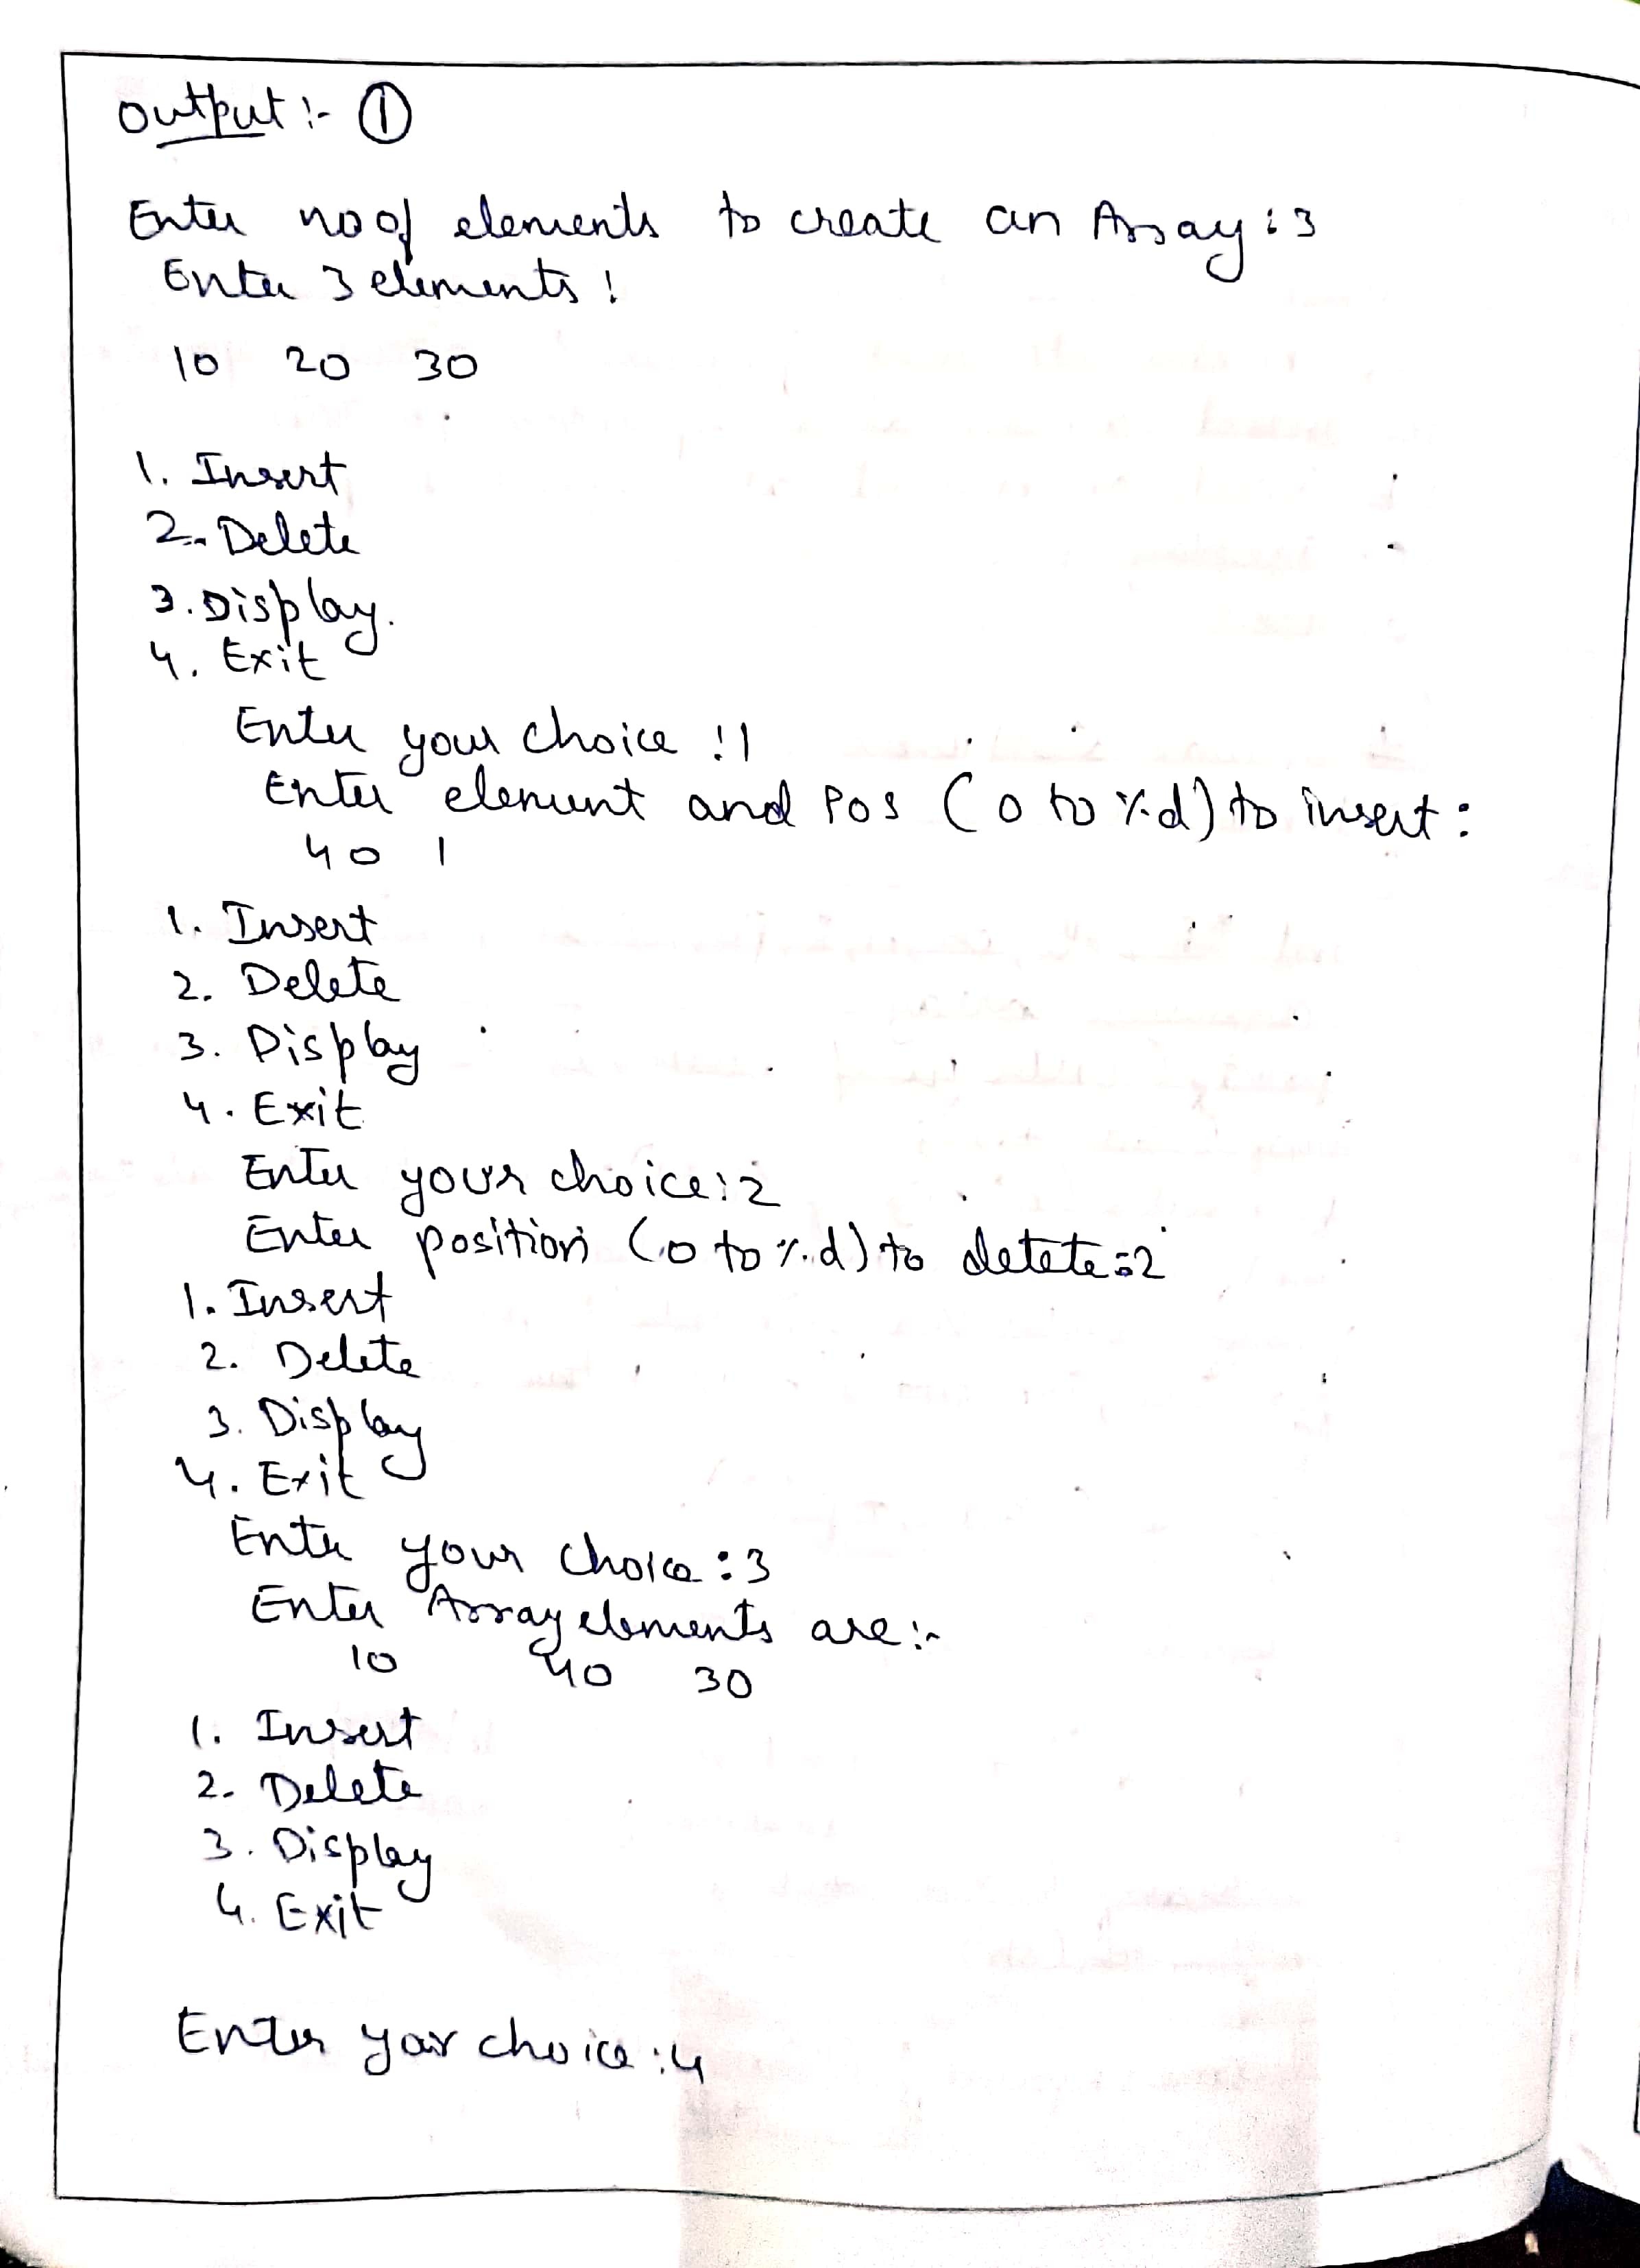 Output :- ①
Enter no of elements to create an Array : 3
Enter 3 elements :
10 20 30
1. Insert
2. Delete
3. Display.
4. Exit
Enter your choice : 1
Enter element and Pos (0 to %d) to insert :
40 1
1. Insert
2. Delete
3. Display
4. Exit
Enter your choice : 2
Enter position (0 to %d) to detete : 2
1. Insert
2. Delete
3. Display
4. Exit
Enter your choice : 3
Enter Array elements are :-
10 40 30
1. Insert
2. Delete
3. Display
4. Exit
Enter your choice : 4